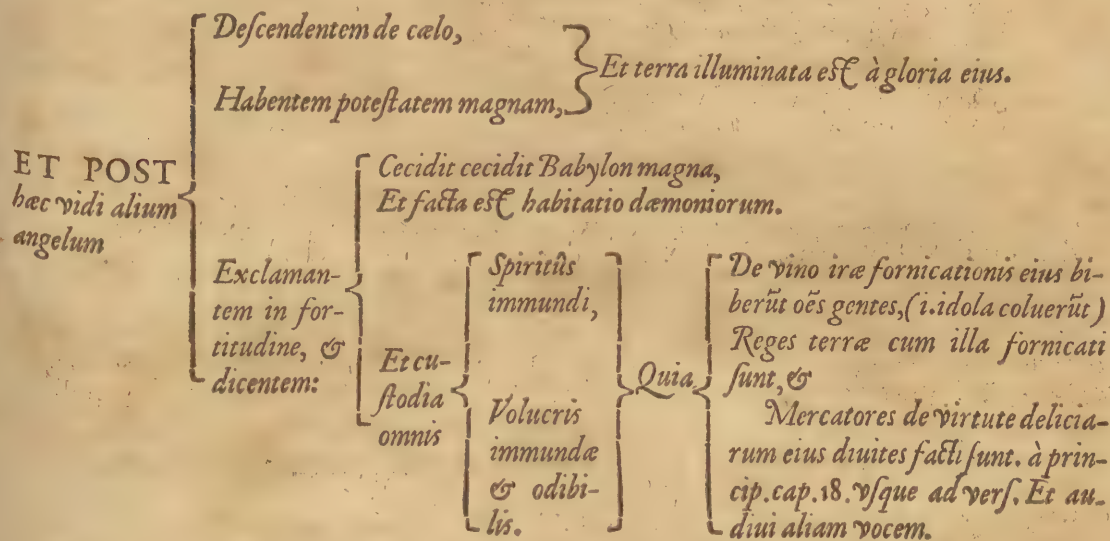 ET POST
hæc vidi alium
angelum
Deſcendentem de cælo,
Habentem poteſtatem magnam,
Et terra illuminata eſt à gloria eius.
Exclaman-
tem in for-
titudine, &
dicentem:
Cecidit cecidit Babylon magna,
Et facta eſt habitatio dæmoniorum.
Et cu-
ſtodia
omnis
Spiritûs
immundi,
Volucris
immundæ
& odibi-
lis.
Quia
De vino iræ fornicationis eius bi-
berũt oẽs gentes, (i. idola coluerũt)
Reges terræ cum illa fornicati
ſunt, &
Mercatores de virtute delicia-
rum eius diuites facti ſunt. à prin-
cip. cap. 18. vſque ad verſ. Et au-
diui aliam vocem.